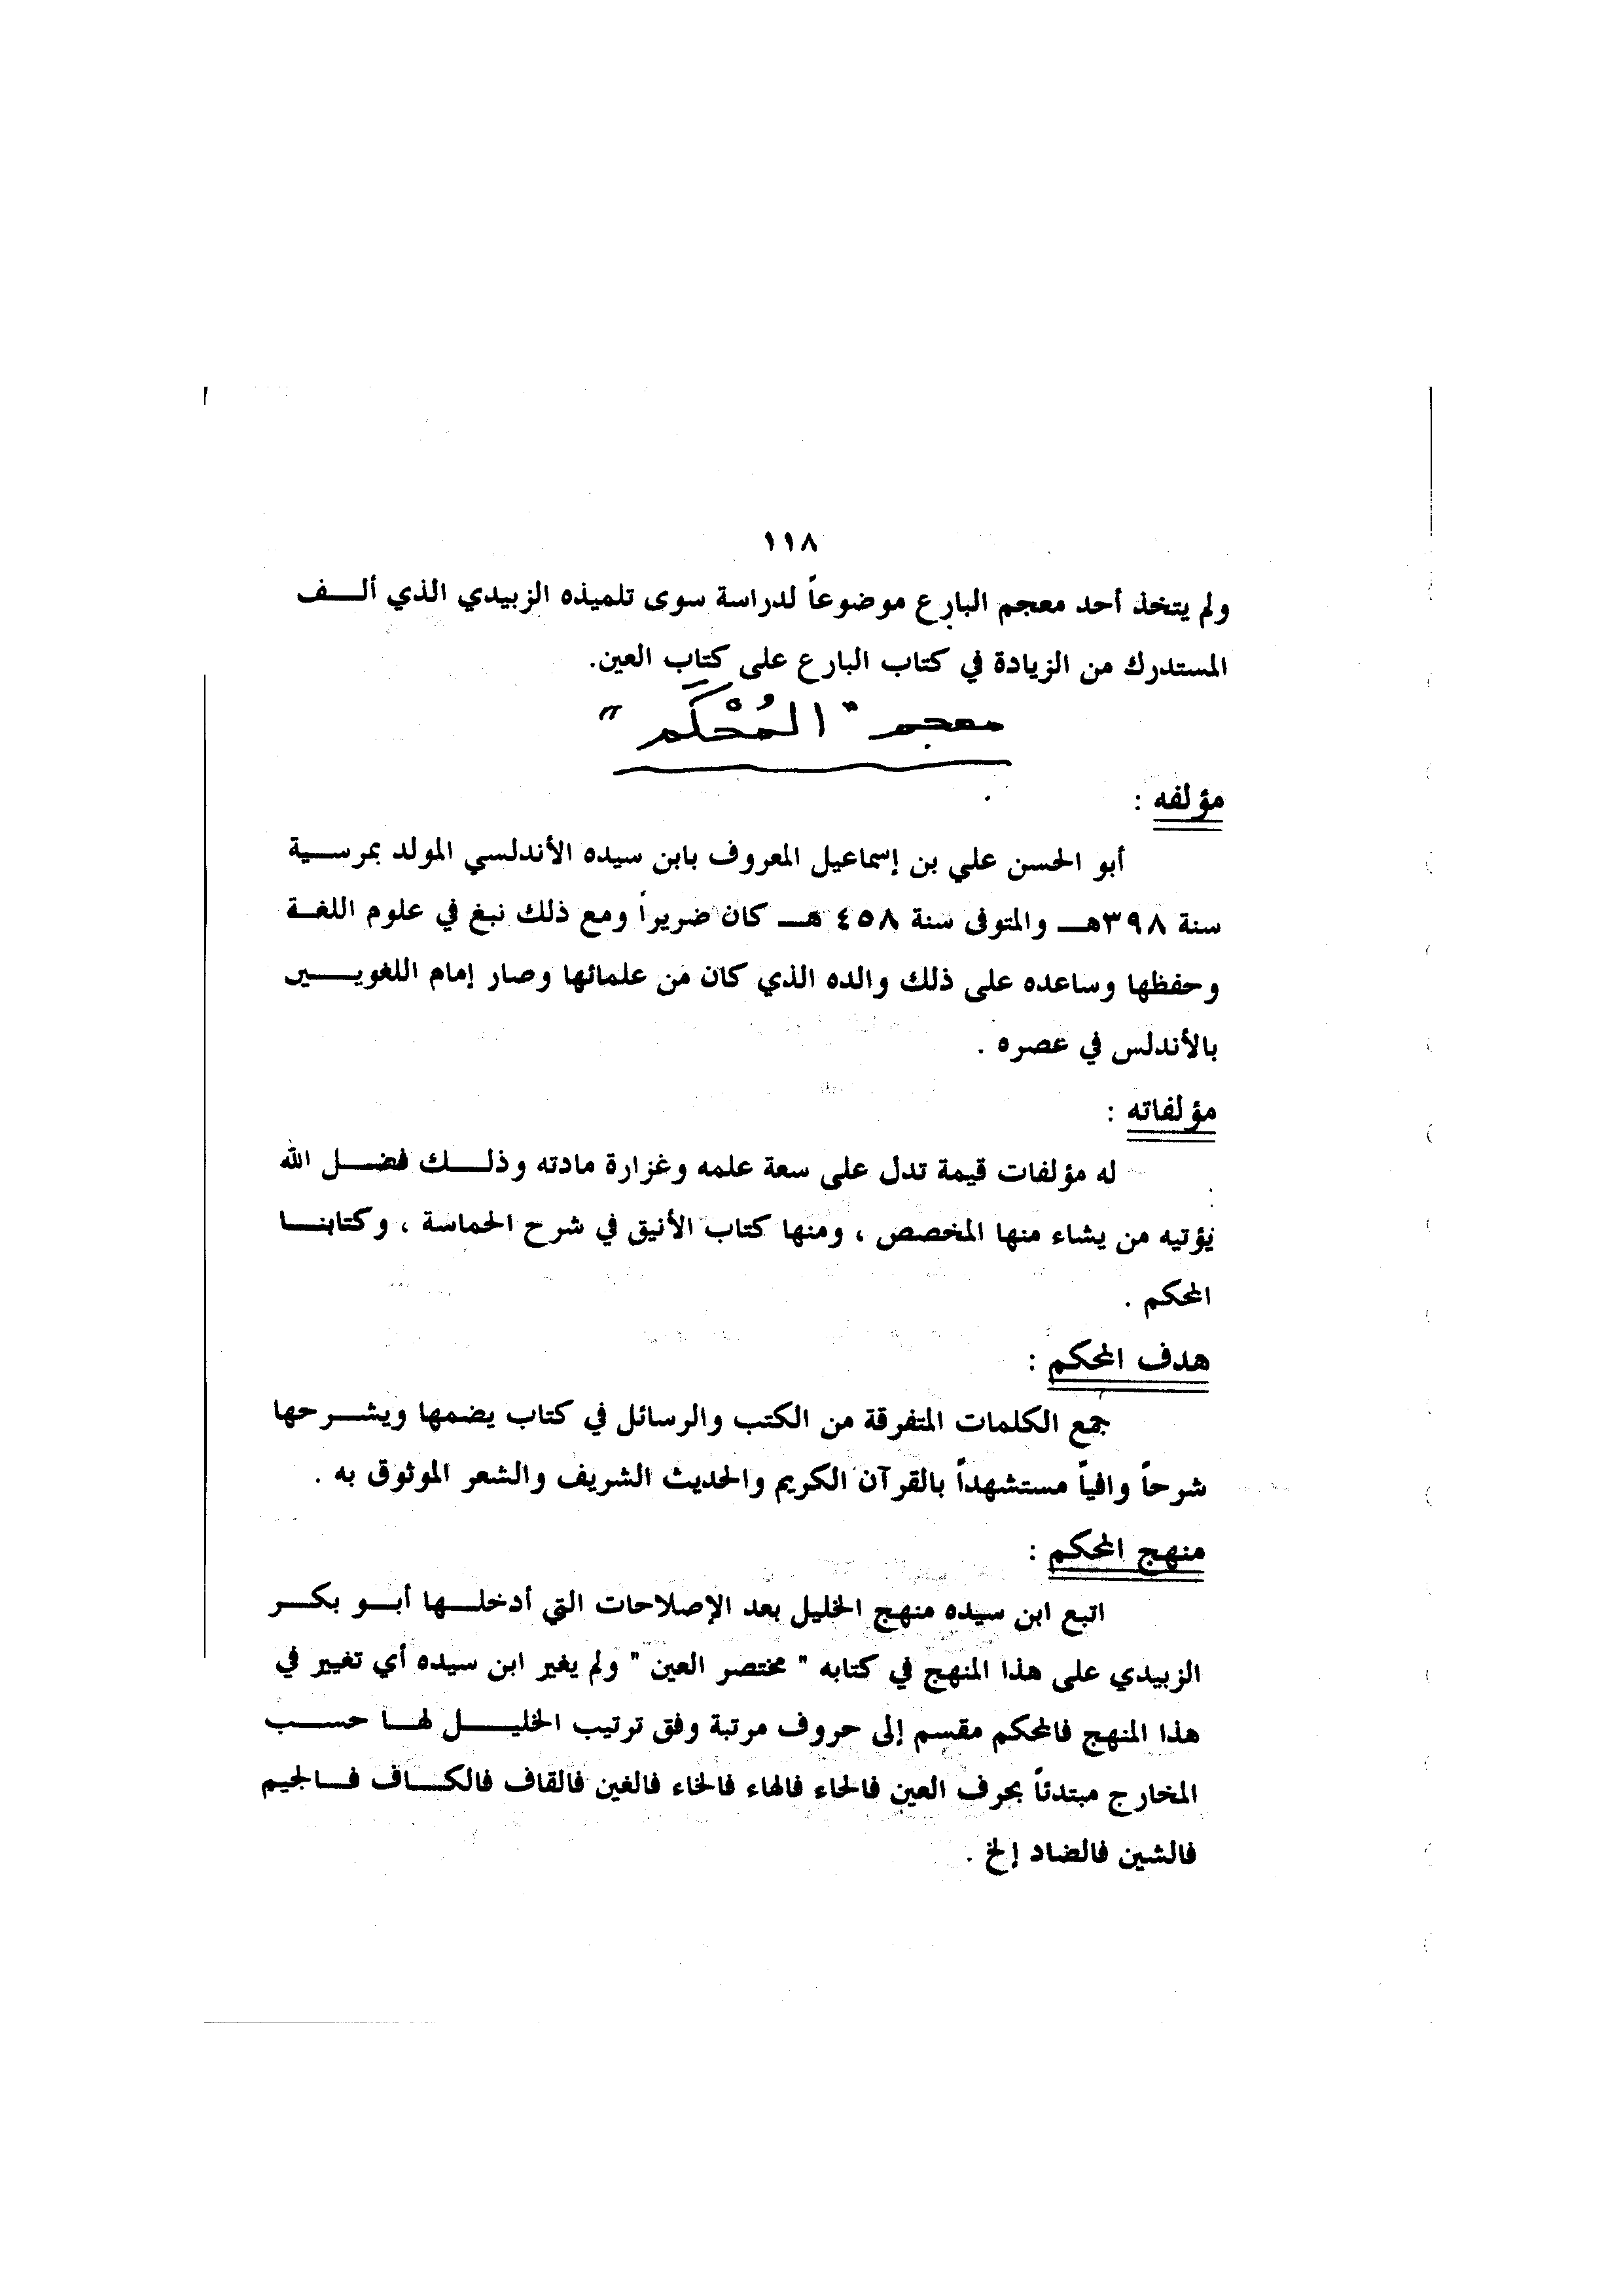 ١١٨
ولم يتخذ أحد معجم البارع موضوعاً لدراسة سوى تلميذه الزبيدي الذي ألف
المستدرك من الزيادة في كتاب البارع على كتاب العين.
معجم "المُحْكَم"
مؤلفه :
أبو الحسن علي بن إسماعيل المعروف بابن سيده الأندلسي المولد بمرسية
سنة ٣٩٨هـ والمتوفى سنة ٤٥٨ هـ كان ضريراً ومع ذلك نبغ في علوم اللغة
وحفظها وساعده على ذلك والده الذي كان من علمائها وصار إمام اللغويين
بالأندلس في عصره .
مؤلفاته :
له مؤلفات قيمة تدل على سعة علمه وغزارة مادته وذلك فضل الله
يؤتيه من يشاء منها المخصص ، ومنها كتاب الأنيق في شرح الحماسة ، وكتابنا
المحكم .
هدف المحكم :
جمع الكلمات المتفرقة من الكتب والرسائل في كتاب يضمها ويشرحها
شرحاً وافياً مستشهداً بالقرآن الكريم والحديث الشريف والشعر الموثوق به .
منهج المحكم :
اتبع ابن سيده منهج الخليل بعد الإصلاحات التي أدخلها أبو بكر
الزبيدي على هذا المنهج في كتابه " مختصر العين " ولم يغير ابن سيده أي تغيير في
هذا المنهج فالمحكم مقسم إلى حروف مرتبة وفق ترتيب الخليل لها حسب
المخارج مبتدئاً بحرف العين فالحاء فالهاء فالخاء فالغين فالقاف فالكاف فالجيم
فالشين فالضاد إلخ .